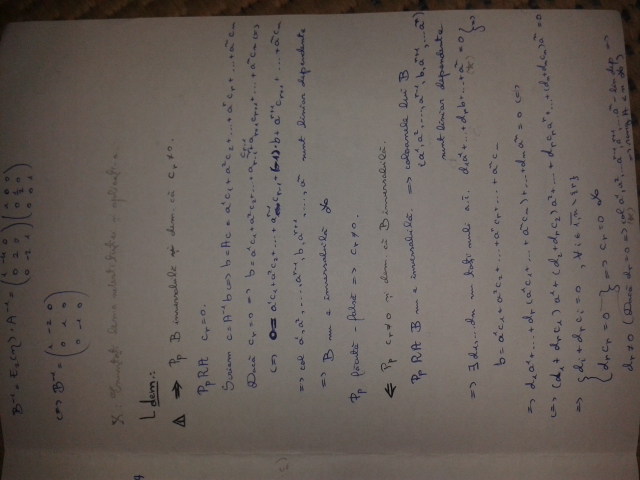 B⁻¹ = E₂(η) · A⁻¹ = (1 -4 0 / 0 2 0 / 0 -2 1) (1 0 0 / 0 ½ 0 / 0 0 1)
(=) B⁻¹ = (1 -2 0 / 0 1 0 / 0 -1 0)
X. Enunțați lema substituției și aplicații.
L dem.:
⚠ => Pp B inversabilă și dem. că cr ≠ 0.
Pp RA cr = 0.
Scriem c = A⁻¹b <=> b = Ac = a¹c₁ + a²c₂ + ... + aʳcr + ... + aⁿcn
Dacă cr = 0 => b = a¹c₁ + a²c₂ + ... + aʳ⁻¹cr-1 + aʳ⁺¹cr+1 + ... + aⁿcn (=)
(=) 0 = a¹c₁ + a²c₂ + ... + aʳ⁻¹cr-1 + (-1)·b + aʳ⁺¹cr+1 + ... + aⁿcn
=> col a¹, a², ..., aʳ⁻¹, b, aʳ⁺¹, ..., aⁿ sunt liniar dependente
=> B nu e inversabilă
Pp făcută - falsă => cr ≠ 0.
<= Pp cr ≠ 0 și dem. că B inversabilă.
Pp RA B nu e inversabilă. => coloanele lui B
(a¹, a², ..., aʳ⁻¹, b, aʳ⁺¹, ..., aⁿ)
sunt liniar dependente
=> ∃ d₁, ... dn nu toți nuli a.î. d₁a¹ + ... + drb + ... + aⁿ = 0 } =>
b = a¹c₁ + a²c₂ + ... + aʳcr + ... + aⁿcn
=> d₁a¹ + ... + dr(a¹c₁ + ... + aⁿcn) + ... + dnaⁿ = 0 (=)
(=) (d₁ + drc₁)a¹ + (d₂ + drc₂)a² + ... + drcraʳ + ... + (dn + drcn)aⁿ = 0
=> { di + drci = 0, ∀ i ∈ 1,n \ {r}
drcr = 0 } => cr = 0
dr ≠ 0 (Dacă dr = 0 => col a¹, a², ... aʳ⁻¹, aʳ⁺¹, ... aⁿ lin dep =>
=> rang A < n